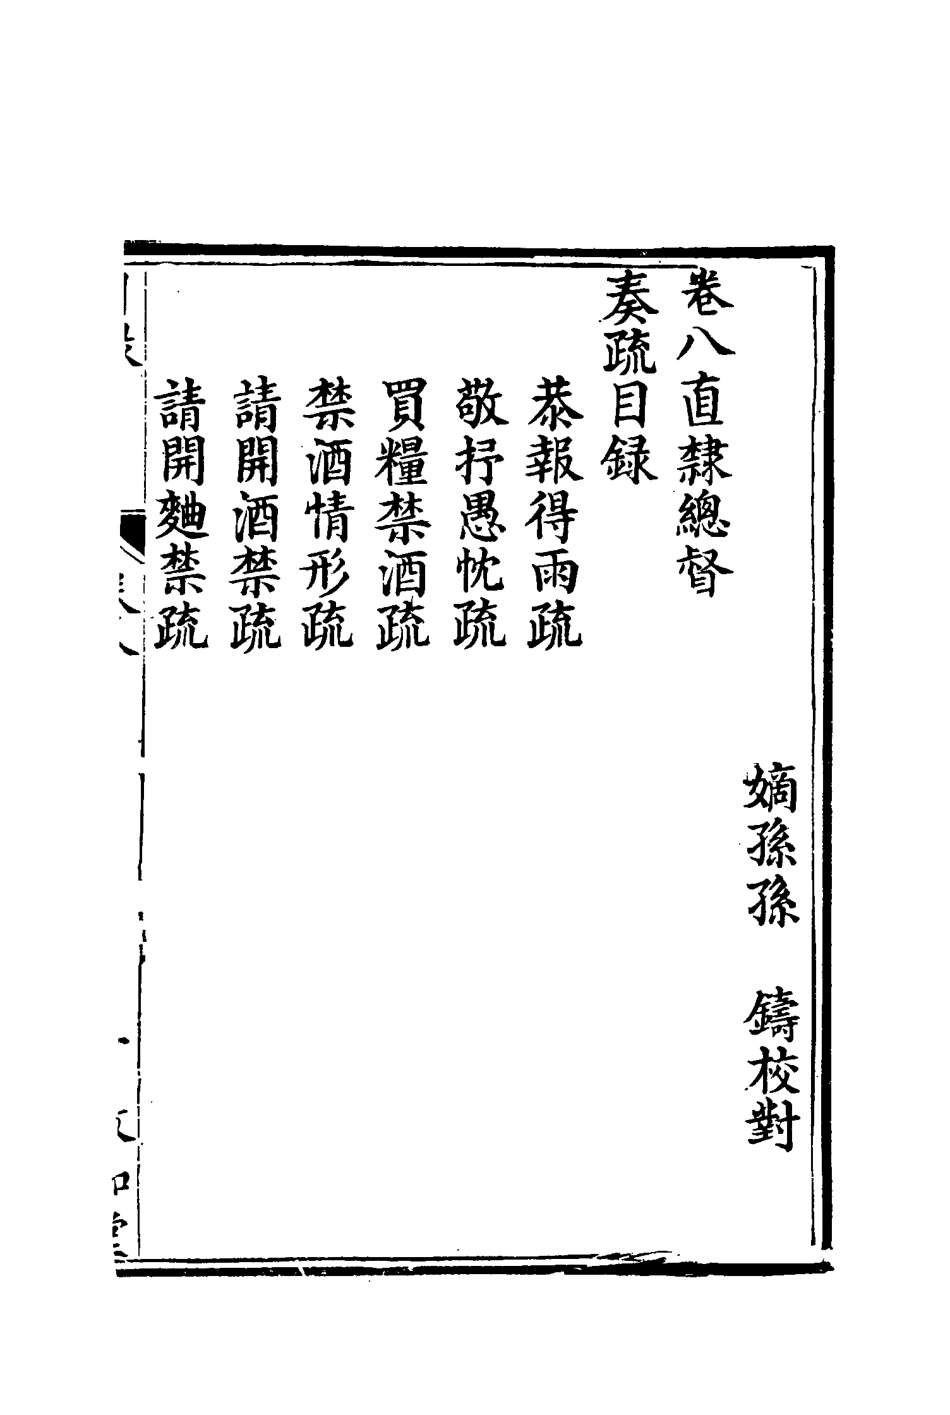 嫡孫孫　鑄校對
卷八直隸總督
奏疏目録
恭報得雨疏
敬抒愚忱疏
買糧禁酒疏
禁酒情形疏
請開酒禁疏
請開麯禁疏